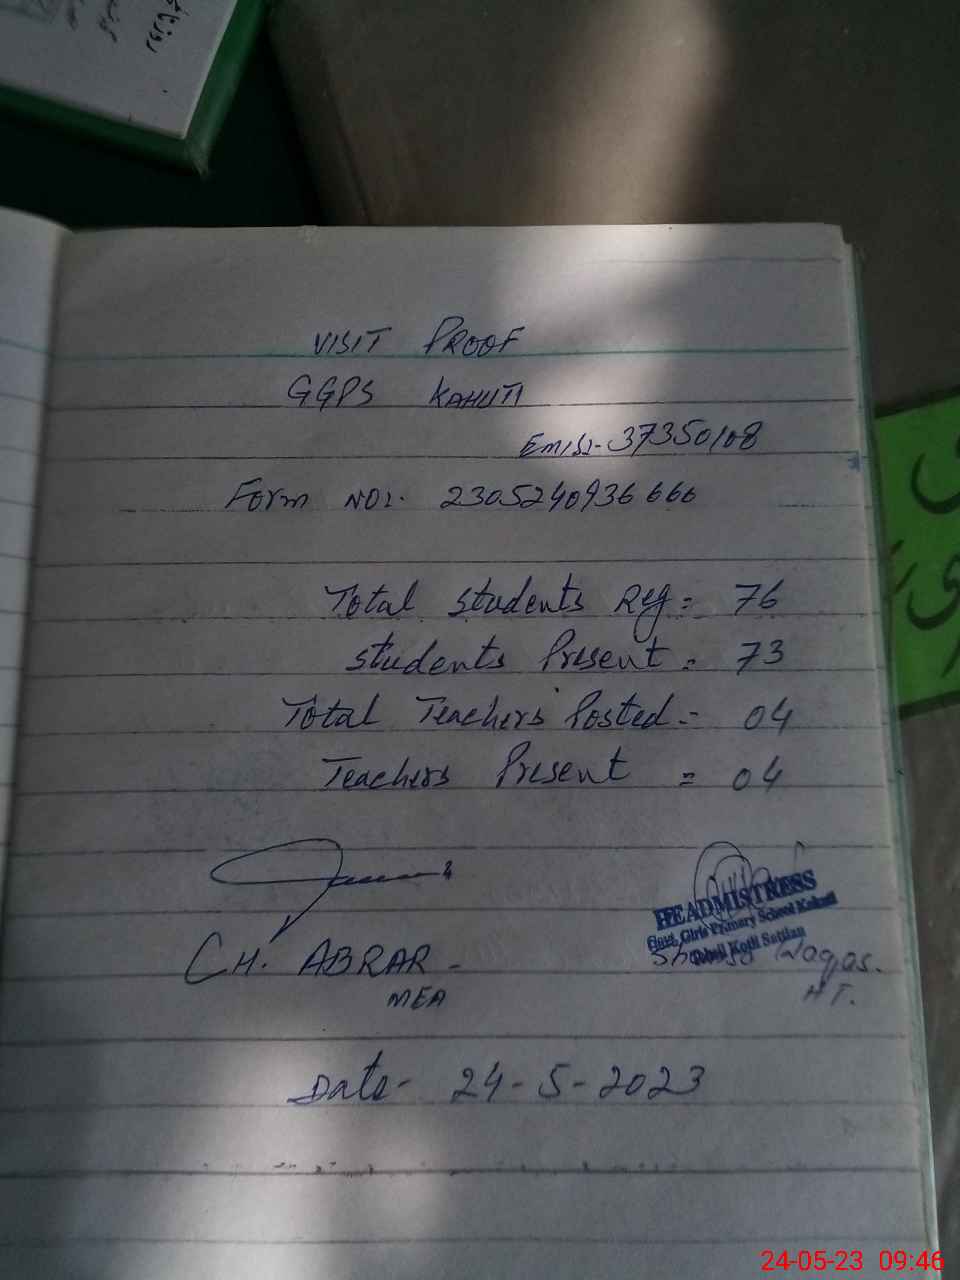 VISIT PROOF
GGPS KAHUTI
Emis:- 37350108
Form NO:- 2305240936666
Total Students Reg = 76
Students Present = 73
Total Teachers Posted = 04
Teachers Present = 04
HEADMISTRESS
Govt. Girls Primary School Kahuti
Tehsil Kotli Sattian
CH. ABRAR -
Waqas.
MEA
HT.
Date - 24-5-2023
24-05-23 09:46